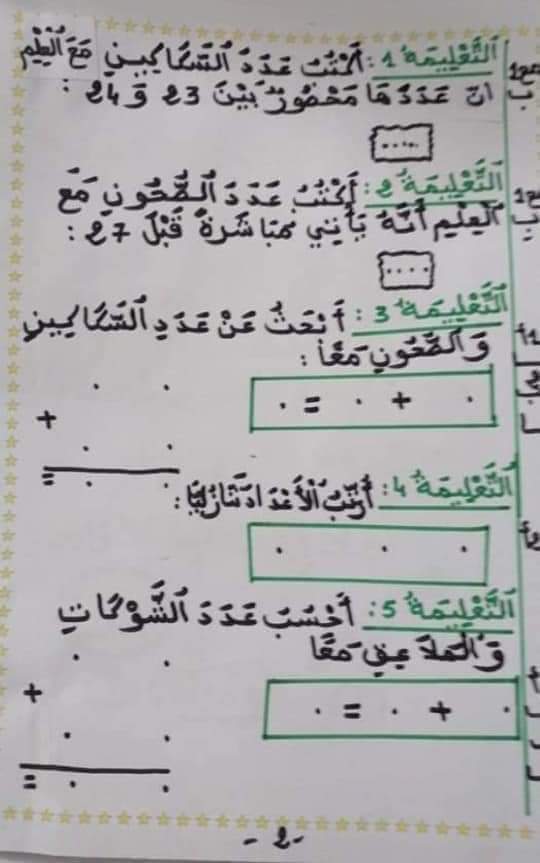 التَّعْلِيمَة 1: أَكْتُبُ عَدَدَ السَّكَاكِينِ مَعَ الْعِلْمِ
انّ عَدَدَهَا مَحْصُورٌ بَيْنَ 23 وَ 24 :
مع1
ب
.....
التَّعْلِيمَة 2: أَكْتُبُ عَدَدَ الصُّحُونِ مَعَ
الْعِلْمِ أَنَّهُ يَأْتِي مُبَاشَرَةً قَبْلَ 27 :
....
التَّعْلِيمَة 3 : أَبْحَثُ عَنْ عَدَدِ السَّكَاكِينِ
وَالصُّحُونِ مَعًا :
. + . = .
. .
+
. .
= . .
التَّعْلِيمَة 4: أُرَتِّبُ الْأَعْدَادَ تَنَازُلِيًّا :
. . .
التَّعْلِيمَة 5: أَحْسُبُ عَدَدَ الشَّوْكَاتِ
وَالْمَلَاعِقِ مَعًا
. + . = .
. .
+
. .
= . .
- 2 -